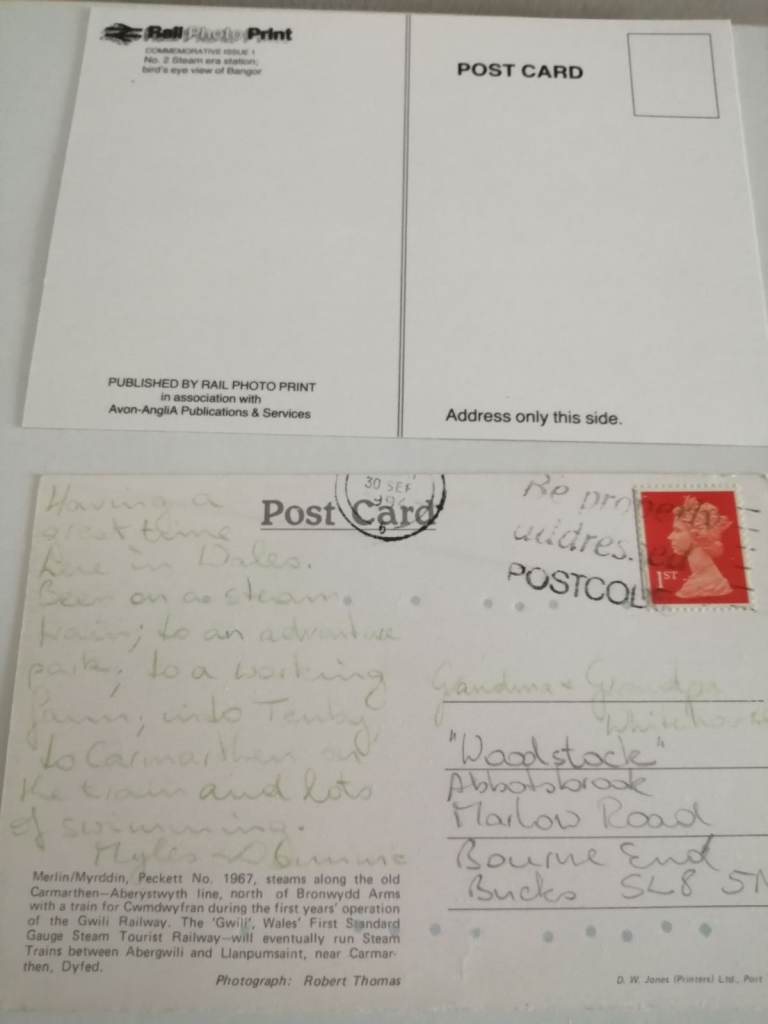 Rail Photo Print
COMMEMORATIVE ISSUE 1
No. 2 Steam era station;
bird's eye view of Bangor
POST CARD
PUBLISHED BY RAIL PHOTO PRINT
in association with
Avon-AngliA Publications & Services
Address only this side.
Having a
great time
here in Wales.
Been on a steam
train; to an adventure
park; to a working
farm; into Tenby,
to Carmarthen on
the train and lots
of swimming.
Myles &
Merlin/Myrddin, Peckett No. 1967, steams along the old
Carmarthen—Aberystwyth line, north of Bronwydd Arms
with a train for Cwmdwyfran during the first years' operation
of the Gwili Railway. The 'Gwili', Wales' First Standard
Gauge Steam Tourist Railway—will eventually run Steam
Trains between Abergwili and Llanpumsaint, near Carmar-
then, Dyfed.
Photograph: Robert Thomas
Post Card
30 SEP
Be properly
addressed
POSTCO
1ST
Grandma & Grandpa
Whitehouse
"Woodstock"
Abbotsbrook
Marlow Road
Bourne End
Bucks SL8 5
D. W. Jones (Printers) Ltd., Port